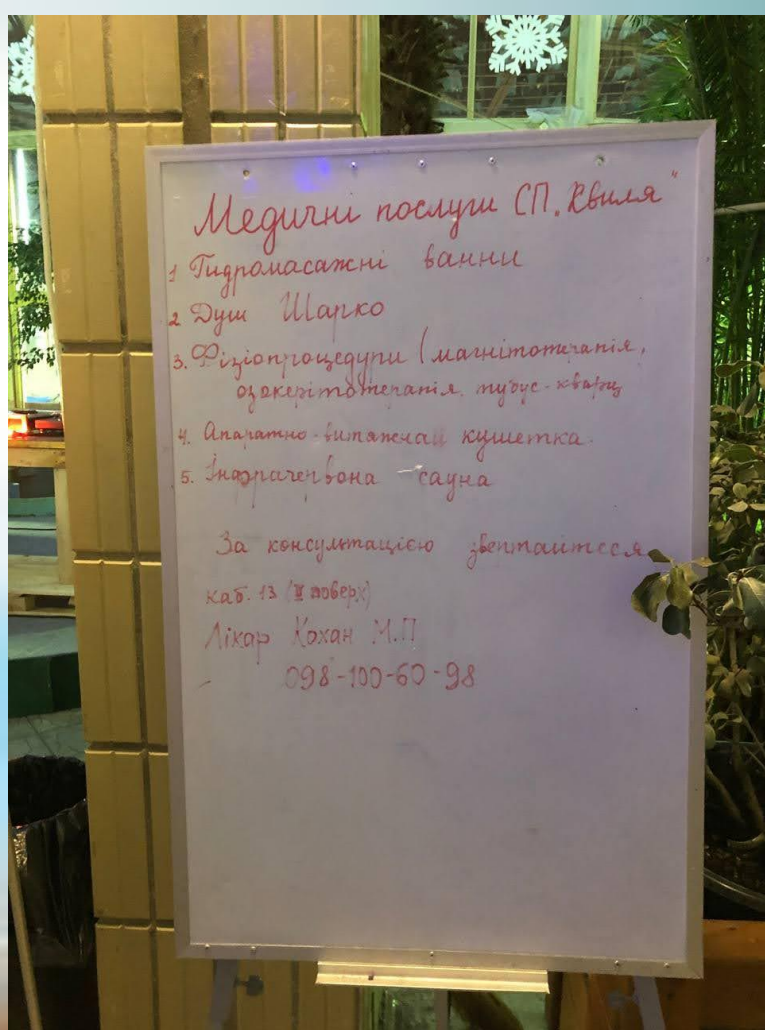 Медичні послуги СП „Хвиля"
1 Гидромасажні ванни
2 Душ Шарко
3. Фізіопроцедури (магнітотерапія,
озокерітотерапія, тубус-кварц
4. Апаратно-витяжная кушетка.
5. Інфрачервона сауна
За консультацією звертайтеся
каб. 13 (II поверх)
Лікар Кохан М.П
098-100-60-98